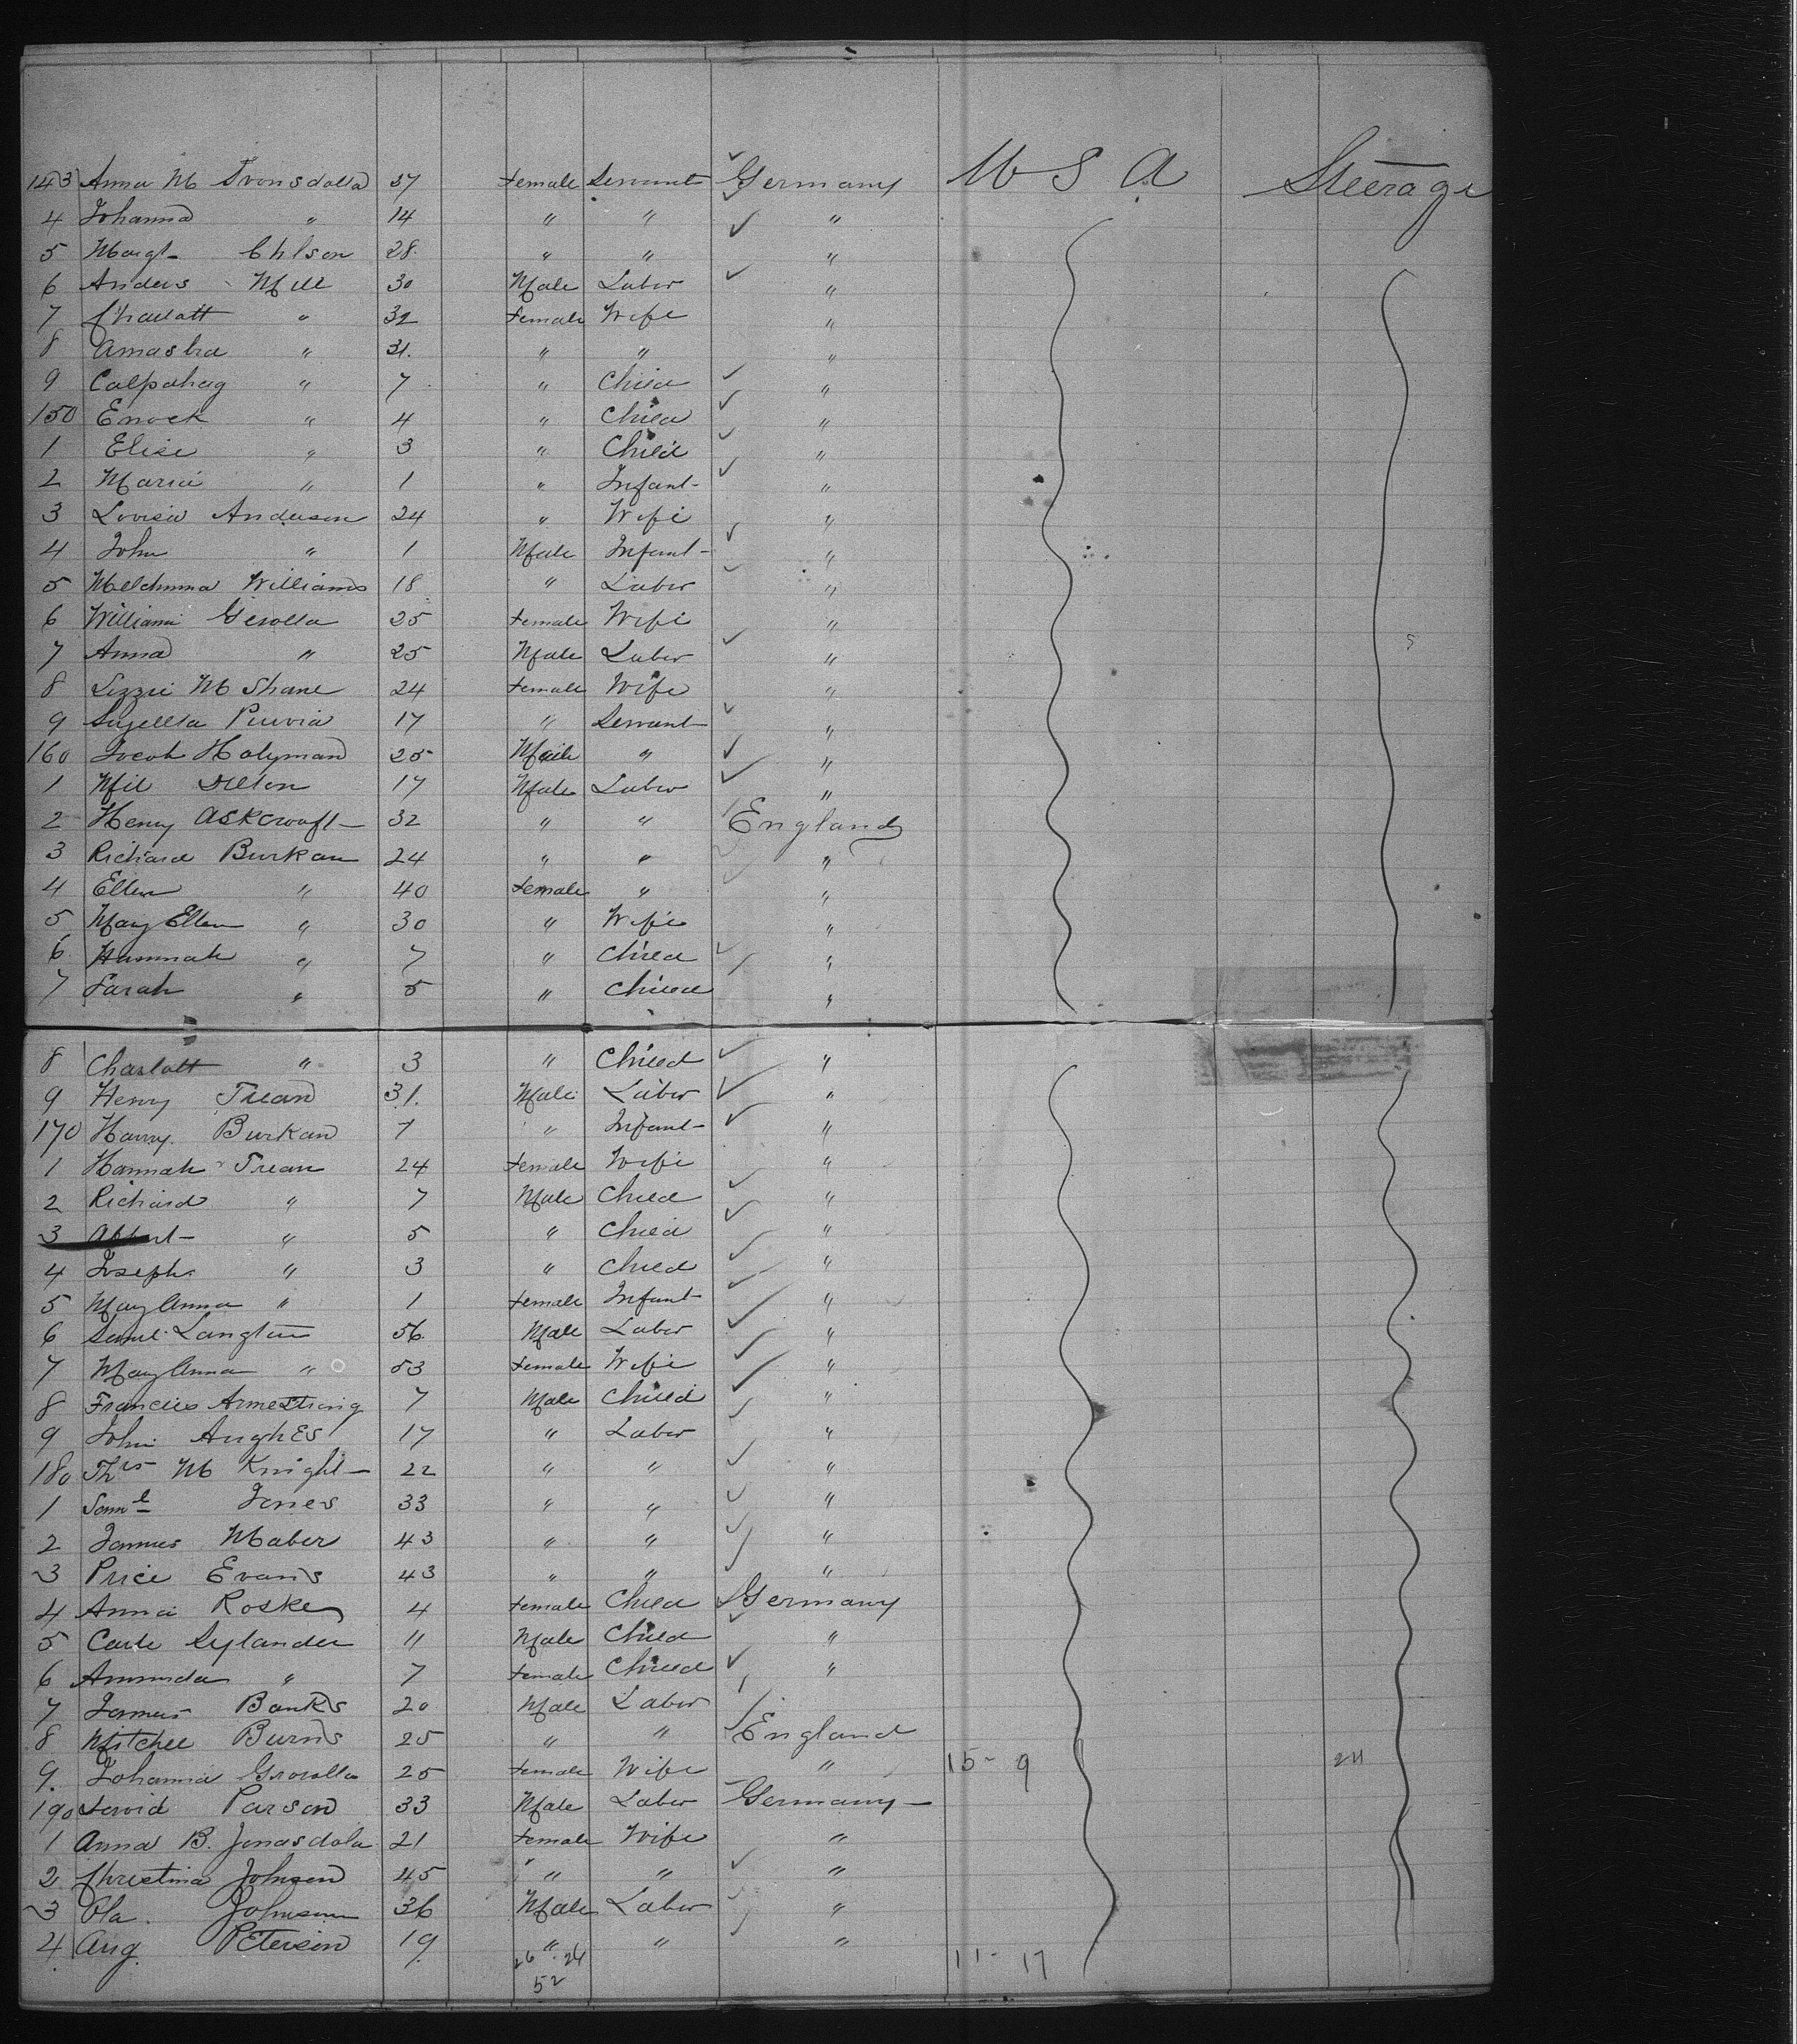 143 Anna M Svonsdolla 37 Female Servant Germany U S A Steerage
4 Johanna " 14 " " "
5 Margt Ohlson 28 " " "
6 Anders Mell 30 Male Labor "
7 Charlott " 32 Female Wife "
8 Amasha " 31. " " "
9 " 7 " Child "
150 Enock " 4 " Child "
1 Elise " 3 " Child "
2 Maria " 1 " Infant "
3 Lovisa Anderson 24 " Wife "
4 John " 1 Male Infant "
5 Williams 18 " Labor "
6 William Gerolla 25 Female Wife "
7 Anna " 25 Male Labor "
8 Lizzie M Shane 24 Female Wife "
9 17 " Servant "
160 Jacob Holyman 25 Male " "
1 Mil Dilton 17 Male Labor "
2 Henry Askcrouft 32 " " England
3 Richard Burkan 24 " " "
4 Ellen " 40 Female " "
5 Mary Ellen " 30 " Wife "
6 Hannah " 7 " Child "
7 Sarah " 5 " Chield "
8 Charlott " 3 " Chield "
9 Henry Trean 31. Male Labor "
170 Harry Burkan 1 " Infant "
1 Hannah Trean 24 Female Wife "
2 Richard " 7 Male Child "
3 Albert " 5 " Child "
4 Joseph " 3 " Child "
5 Mary Anna " 1 Female Infant "
6 Saml Langton 56 Male Labor "
7 Mary Anna " 53 Female Wife "
8 Francies Armestrong 7 Male Chield "
9 John Aughes 17 " Labor "
180 Thos M Knight 22 " " "
1 Saml Jones 33 " " "
2 James Maber 43 " " "
3 Price Evans 43 " " "
4 Anna Roske 4 Female Child Germany
5 Carle Sylander 11 Male Child "
6 Amunda " 7 Female Chield "
7 James Banks 20 Male Labor
8 Mitchel Burns 25 " " England
9. Johanna Gerolla 25 Female Wife " 15 - 9 24
190 David Parson 33 Male Labor Germany
1 Anna B. Jonasdola 21 Female Wife "
2 Christina Johnson 45 " " "
3 Ola. Johnson 36 Male Labor "
4 Aug. Peterson 19 " " "
26 . 24 11 - 17
52